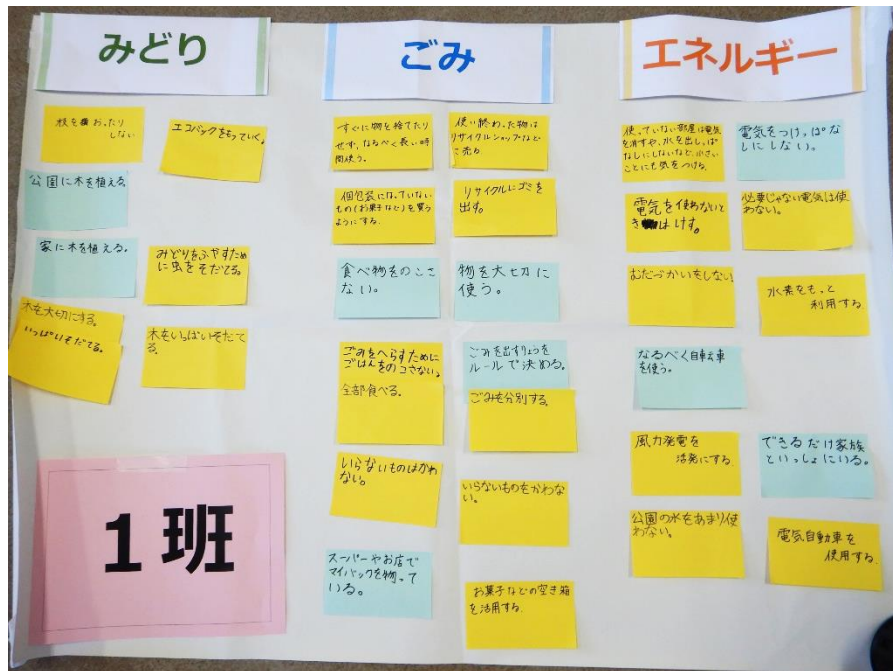 みどり
枝を折ったり
しない
エコバックをもっていく。
公園に木を植える。
家に木を植える。
みどりをふやすため
に虫をそだてる。
木を大切にする。
いっぱいそだてる。
木をいっぱいそだて
る。
1班
ごみ
すぐに物を捨てたり
せず、なるべく長い時
間使う。
使い終わった物は
リサイクルショップなど
で売る
個包装になっていない
もの(お菓子など)を買う
ようにする。
リサイクルにゴミを
出す。
食べ物をのこさ
ない。
物を大切に
使う。
ごみをへらすために
ごはんをのコさない。
全部食べる。
ごみを出すりょうを
ルールで決める。
ごみを分別する
いらないものはかわ
ない。
いらないものをかわな
い。
スーパーやお店で
マイバックを物って
いる。
お菓子などの空き箱
を活用する.
エネルギー
使っていない部屋は電気
を消すや、水を出しっぱ
なしにしないなど、小さい
ことにも気をつける。
電気をつけっぱな
しにしない。
電気を使わないと
きはけす。
必要じゃない電気は使
わない。
むだづかいをしない
水素をもっと
利用する
なるべく自転車
を使う。
風力発電を
活発にする.
できるだけ家族
といっしょにいる。
公園の水をあまり使
わない。
電気自動車を
使用する.